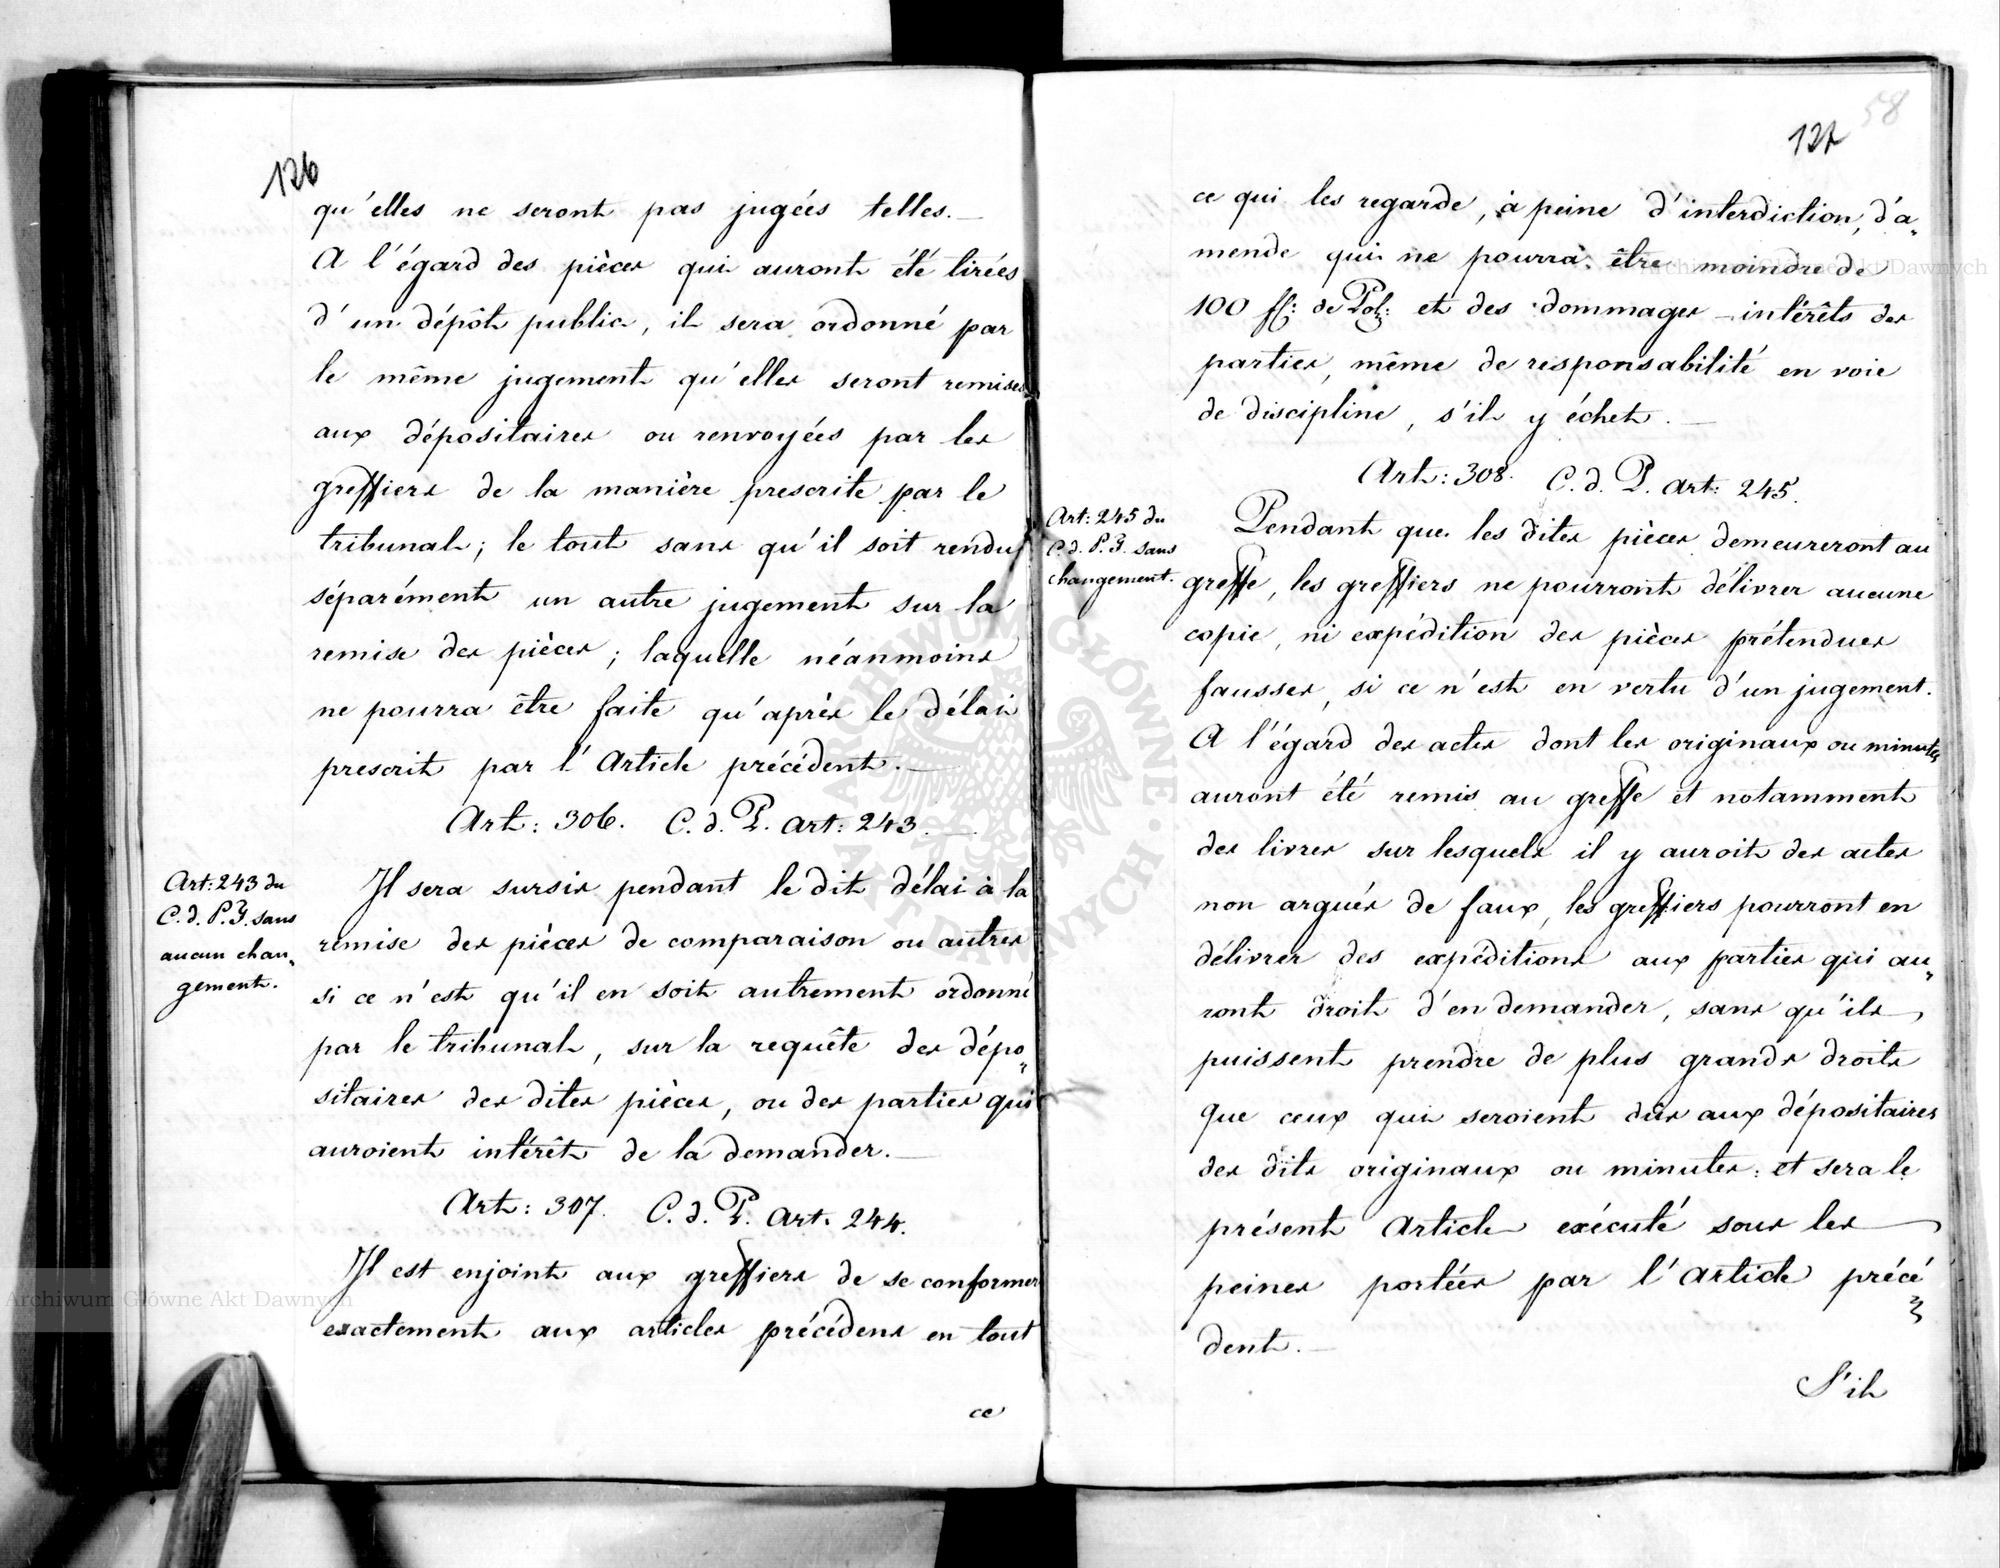 126
qu'elles ne seront pas jugées telles. —
A l'égard des pièces qui auront été tirées
d'un dépôt public, il sera ordonné par
le même jugement qu'elles seront remises
aux dépositaires ou renvoyées par les
greffiers de la manière prescrite par le
tribunal; le tout sans qu'il soit rendu
séparément un autre jugement sur la
remise des pièces; laquelle néanmoins
ne pourra être faite qu'après le délai
prescrit par l'Article précédent. —
Art: 306. C. d. P. art: 243. —
Art: 243 du
C. d. P. F. sans
aucun chan„
gement.
Il sera sursis pendant le dit délai à la
remise des pièces de comparaison ou autres
si ce n'est qu'il en soit autrement ordonné
par le tribunal, sur la requête des dépo„
sitaires des dites pièces, ou des parties qui
auroient intérêt de la demander. —
Art: 307. C. d. P. art. 244.
Il est enjoint aux greffiers de se conformer
exactement aux articles précédens en tout
ce
58
127
ce qui les regarde, à peine d'interdiction, d'a„
mende qui ne pourra être moindre de
100 fl: de Pol: et des dommages-intérêts des
parties, même de responsabilité en voie
de discipline, s'il y échet. —
Art: 308. C. d. P. art: 245.
Art: 245 du
C. d. P. F. sans
changement.
Pendant que les dites pièces demeureront au
greffe, les greffiers ne pourront délivrer aucune
copie, ni expédition des pièces prétendues
fausses, si ce n'est en vertu d'un jugement.
A l'égard des actes dont les originaux ou minutes
auront été remis au greffe et notamment
des livres sur lesquels il y auroit des actes
non argués de faux, les greffiers pourront en
délivrer des expéditions aux parties qui au„
ront droit d'en demander, sans qu'ils
puissent prendre de plus grands droits
que ceux qui seroient dûs aux dépositaires
des dits originaux ou minutes: et sera le
présent Article exécuté sous les
peines portées par l'Article précé„
dent. —
S'il
ARCHIWUM GŁÓWNE AKT DAWNYCH
Archiwum Główne Akt Dawnych
Archiwum Główne Akt Dawnych